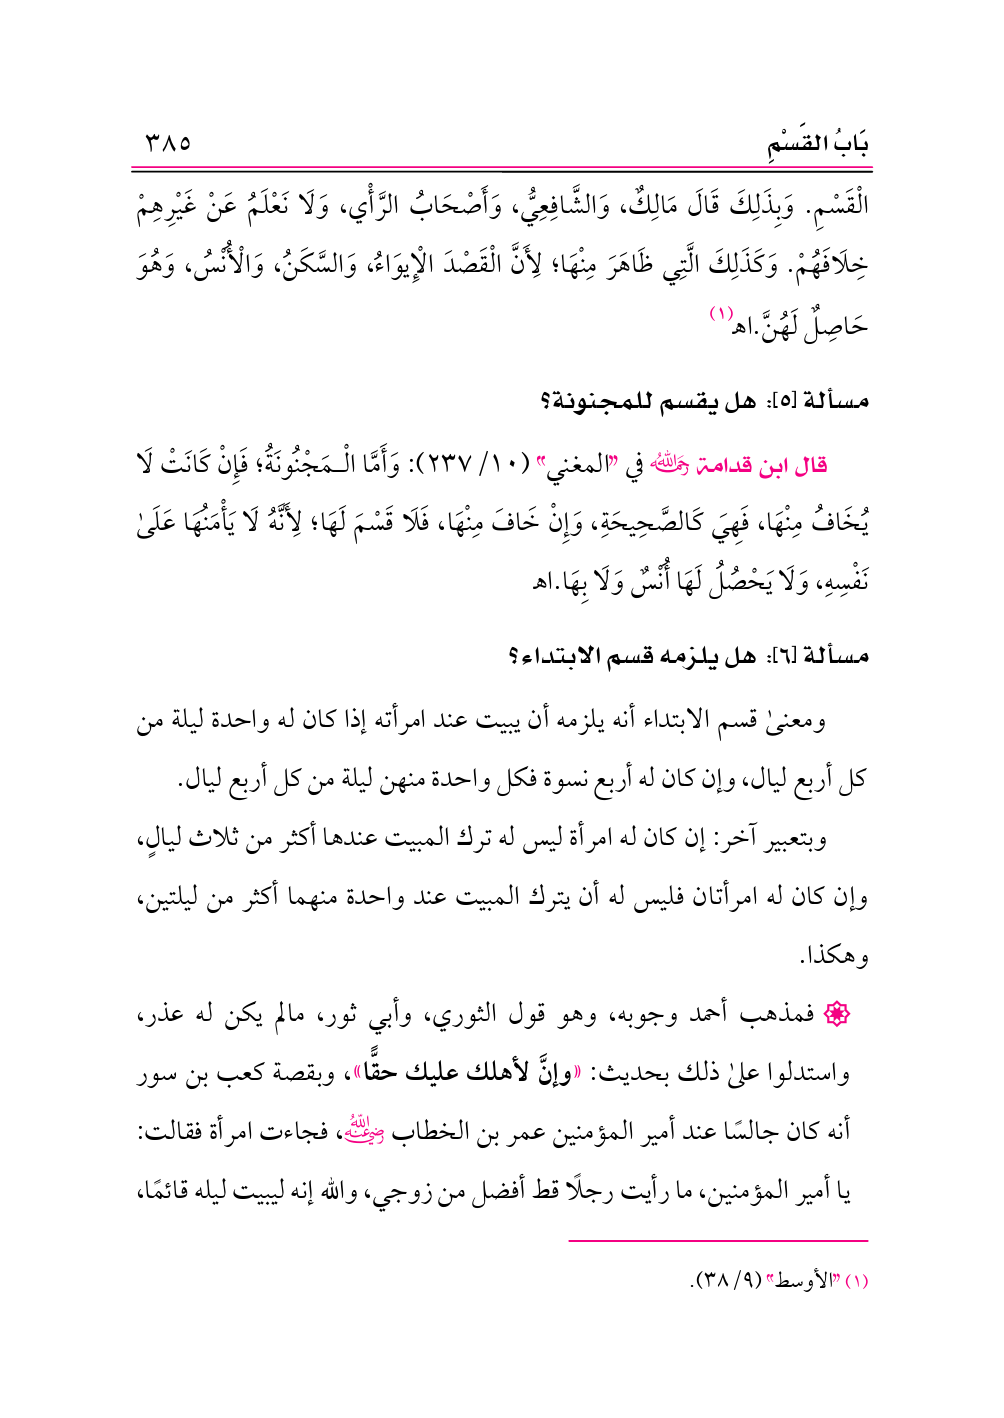 بَابُ القَسْمِ ٣٨٥
الْقَسْمِ. وَبِذَلِكَ قَالَ مَالِكٌ، وَالشَّافِعِيُّ، وَأَصْحَابُ الرَّأْي، وَلَا نَعْلَمُ عَنْ غَيْرِهِمْ
خِلَافَهُمْ. وَكَذَلِكَ الَّتِي ظَاهَرَ مِنْهَا؛ لِأَنَّ الْقَصْدَ الْإِيوَاءُ، وَالسَّكَنُ، وَالْأُنْسُ، وَهُوَ
حَاصِلٌ لَهُنَّ.اهـ(١)
مسألة [٥]: هل يقسم للمجنونة؟
قال ابن قدامة رحمه الله في "المغني" (١٠/ ٢٣٧): وَأَمَّا الْـمَجْنُونَةُ؛ فَإِنْ كَانَتْ لَا
يُخَافُ مِنْهَا، فَهِيَ كَالصَّحِيحَةِ، وَإِنْ خَافَ مِنْهَا، فَلَا قَسْمَ لَهَا؛ لِأَنَّهُ لَا يَأْمَنُهَا عَلَىٰ
نَفْسِهِ، وَلَا يَحْصُلُ لَهَا أُنْسٌ وَلَا بِهَا.اهـ
مسألة [٦]: هل يلزمه قسم الابتداء؟
ومعنىٰ قسم الابتداء أنه يلزمه أن يبيت عند امرأته إذا كان له واحدة ليلة من
كل أربع ليال، وإن كان له أربع نسوة فكل واحدة منهن ليلة من كل أربع ليال.
وبتعبير آخر: إن كان له امرأة ليس له ترك المبيت عندها أكثر من ثلاث ليالٍ،
وإن كان له امرأتان فليس له أن يترك المبيت عند واحدة منهما أكثر من ليلتين،
وهكذا.
فمذهب أحمد وجوبه، وهو قول الثوري، وأبي ثور، مالم يكن له عذر،
واستدلوا علىٰ ذلك بحديث: «وإنَّ لأهلك عليك حقًّا»، وبقصة كعب بن سور
أنه كان جالسًا عند أمير المؤمنين عمر بن الخطاب رضي الله عنه، فجاءت امرأة فقالت:
يا أمير المؤمنين، ما رأيت رجلًا قط أفضل من زوجي، والله إنه ليبيت ليله قائمًا،
(١) "الأوسط" (٩/ ٣٨).